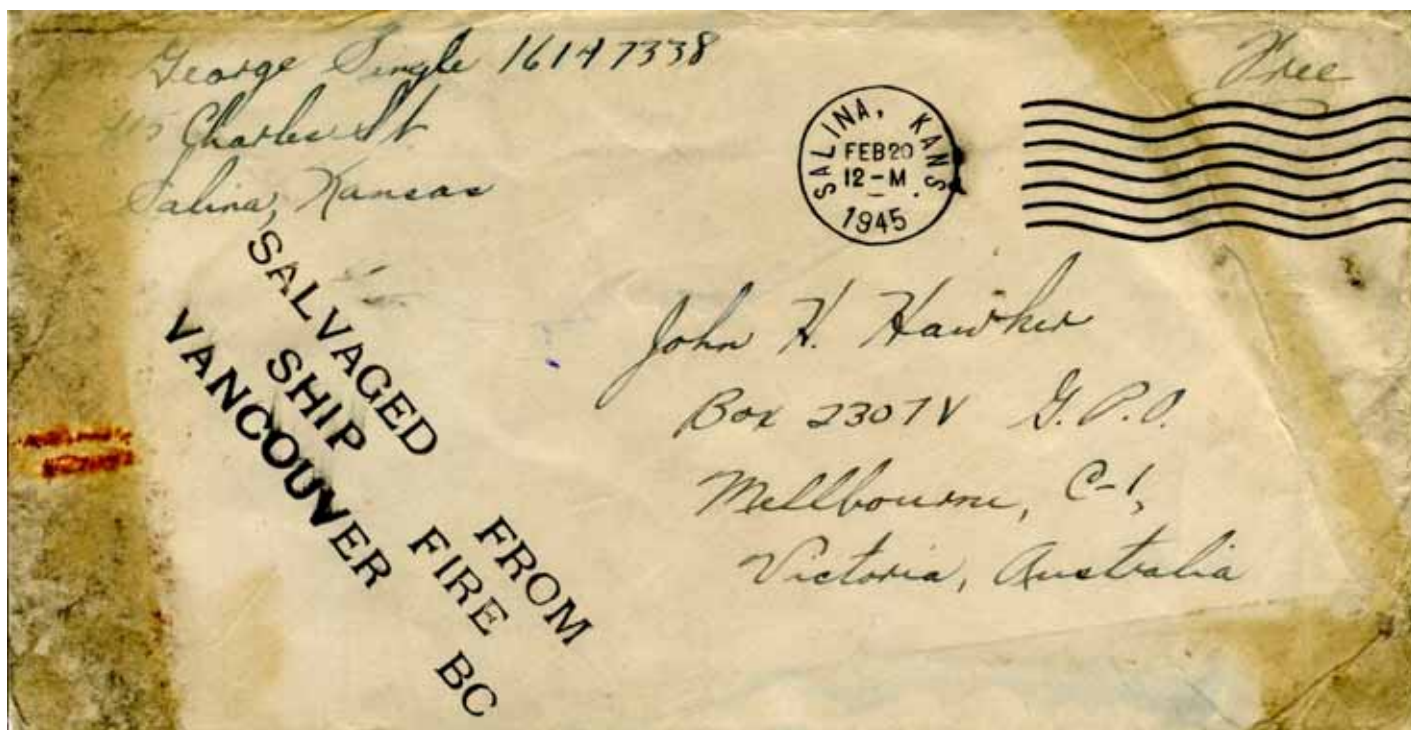 George Single 16147338
415 Charles St.
Salina, Kansas
Free
SALINA, KANS.
FEB 20
12-M
1945
SALVAGED FROM
SHIP FIRE
VANCOUVER BC
John H. Hawker
Box 2307V G.P.O.
Mellbourne, C-1,
Victoria, Australia